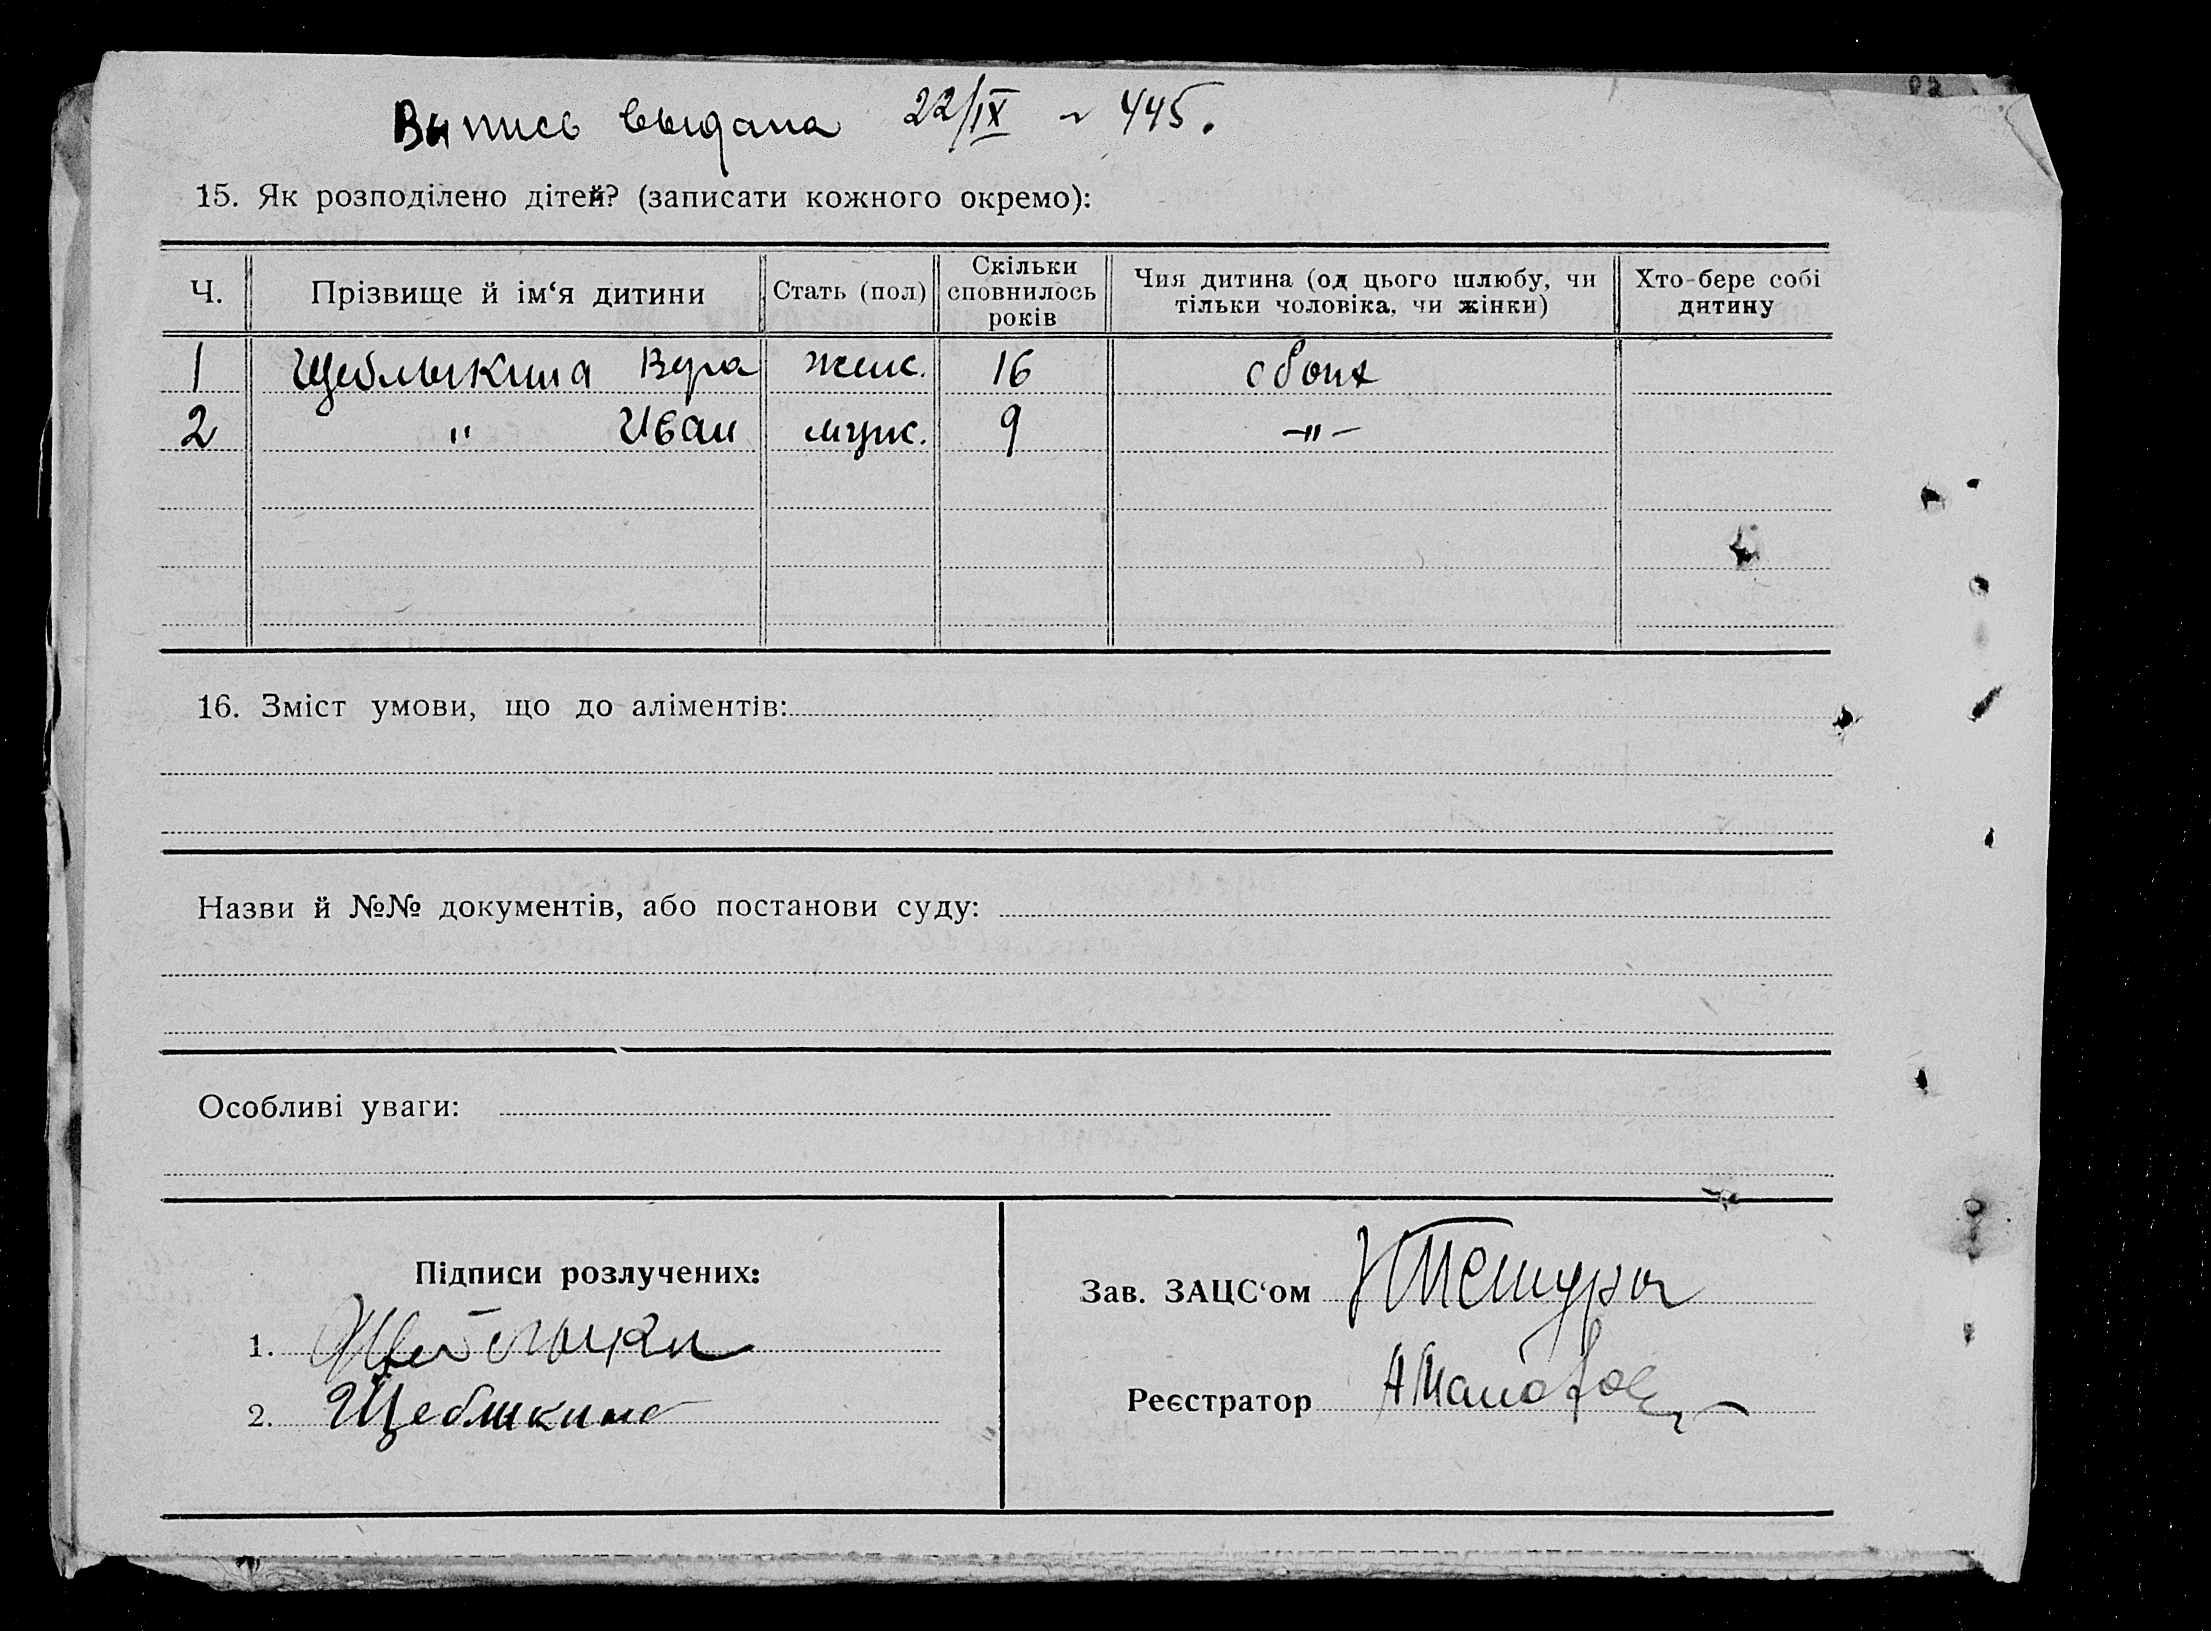 Выпись выдана 22/IX ~ 445.
15. Як розподілено дітей? (записати кожного окремо):
Ч. Прізвище й ім‘я дитини Стать (пол) Скільки сповнилось років Чия дитина (од цього шлюбу, чи тільки чоловіка, чи жінки) Хто бере собі дитину
1 Щеблыкина Вера женс. 16 обоих
2 " Иван мужс. 9 –"–
16. Зміст умови, що до аліментів:
Назви й №№ документів, або постанови суду:
Особливі уваги:
Підписи розлучених:
1.
2. Щеблыкина
Зав. ЗАЦС‘ом
Реєстратор